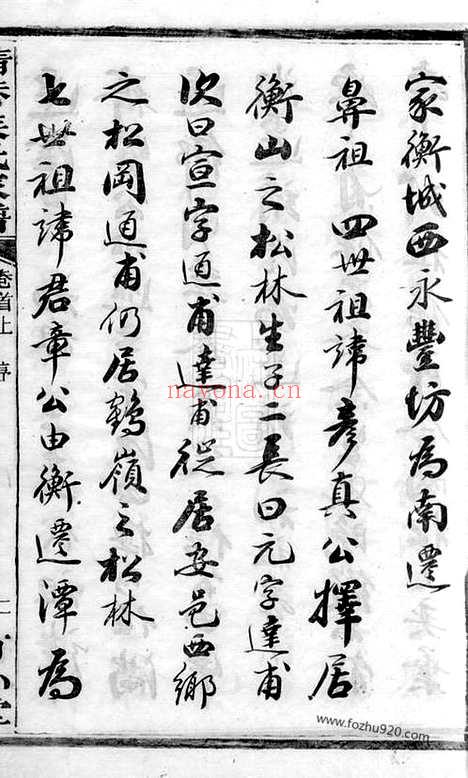 家衡城西永豐坊為南遷
鼻祖四世祖諱彥真公擇居
衡山之松林生子二長曰元字達甫
次曰宣字通甫達甫從居安邑西鄉
之松岡通甫仍居鶴嶺之松林
七世祖諱君章公由衡遷潭為
卷首上 序
nayona.cn
www.fozhu920.com